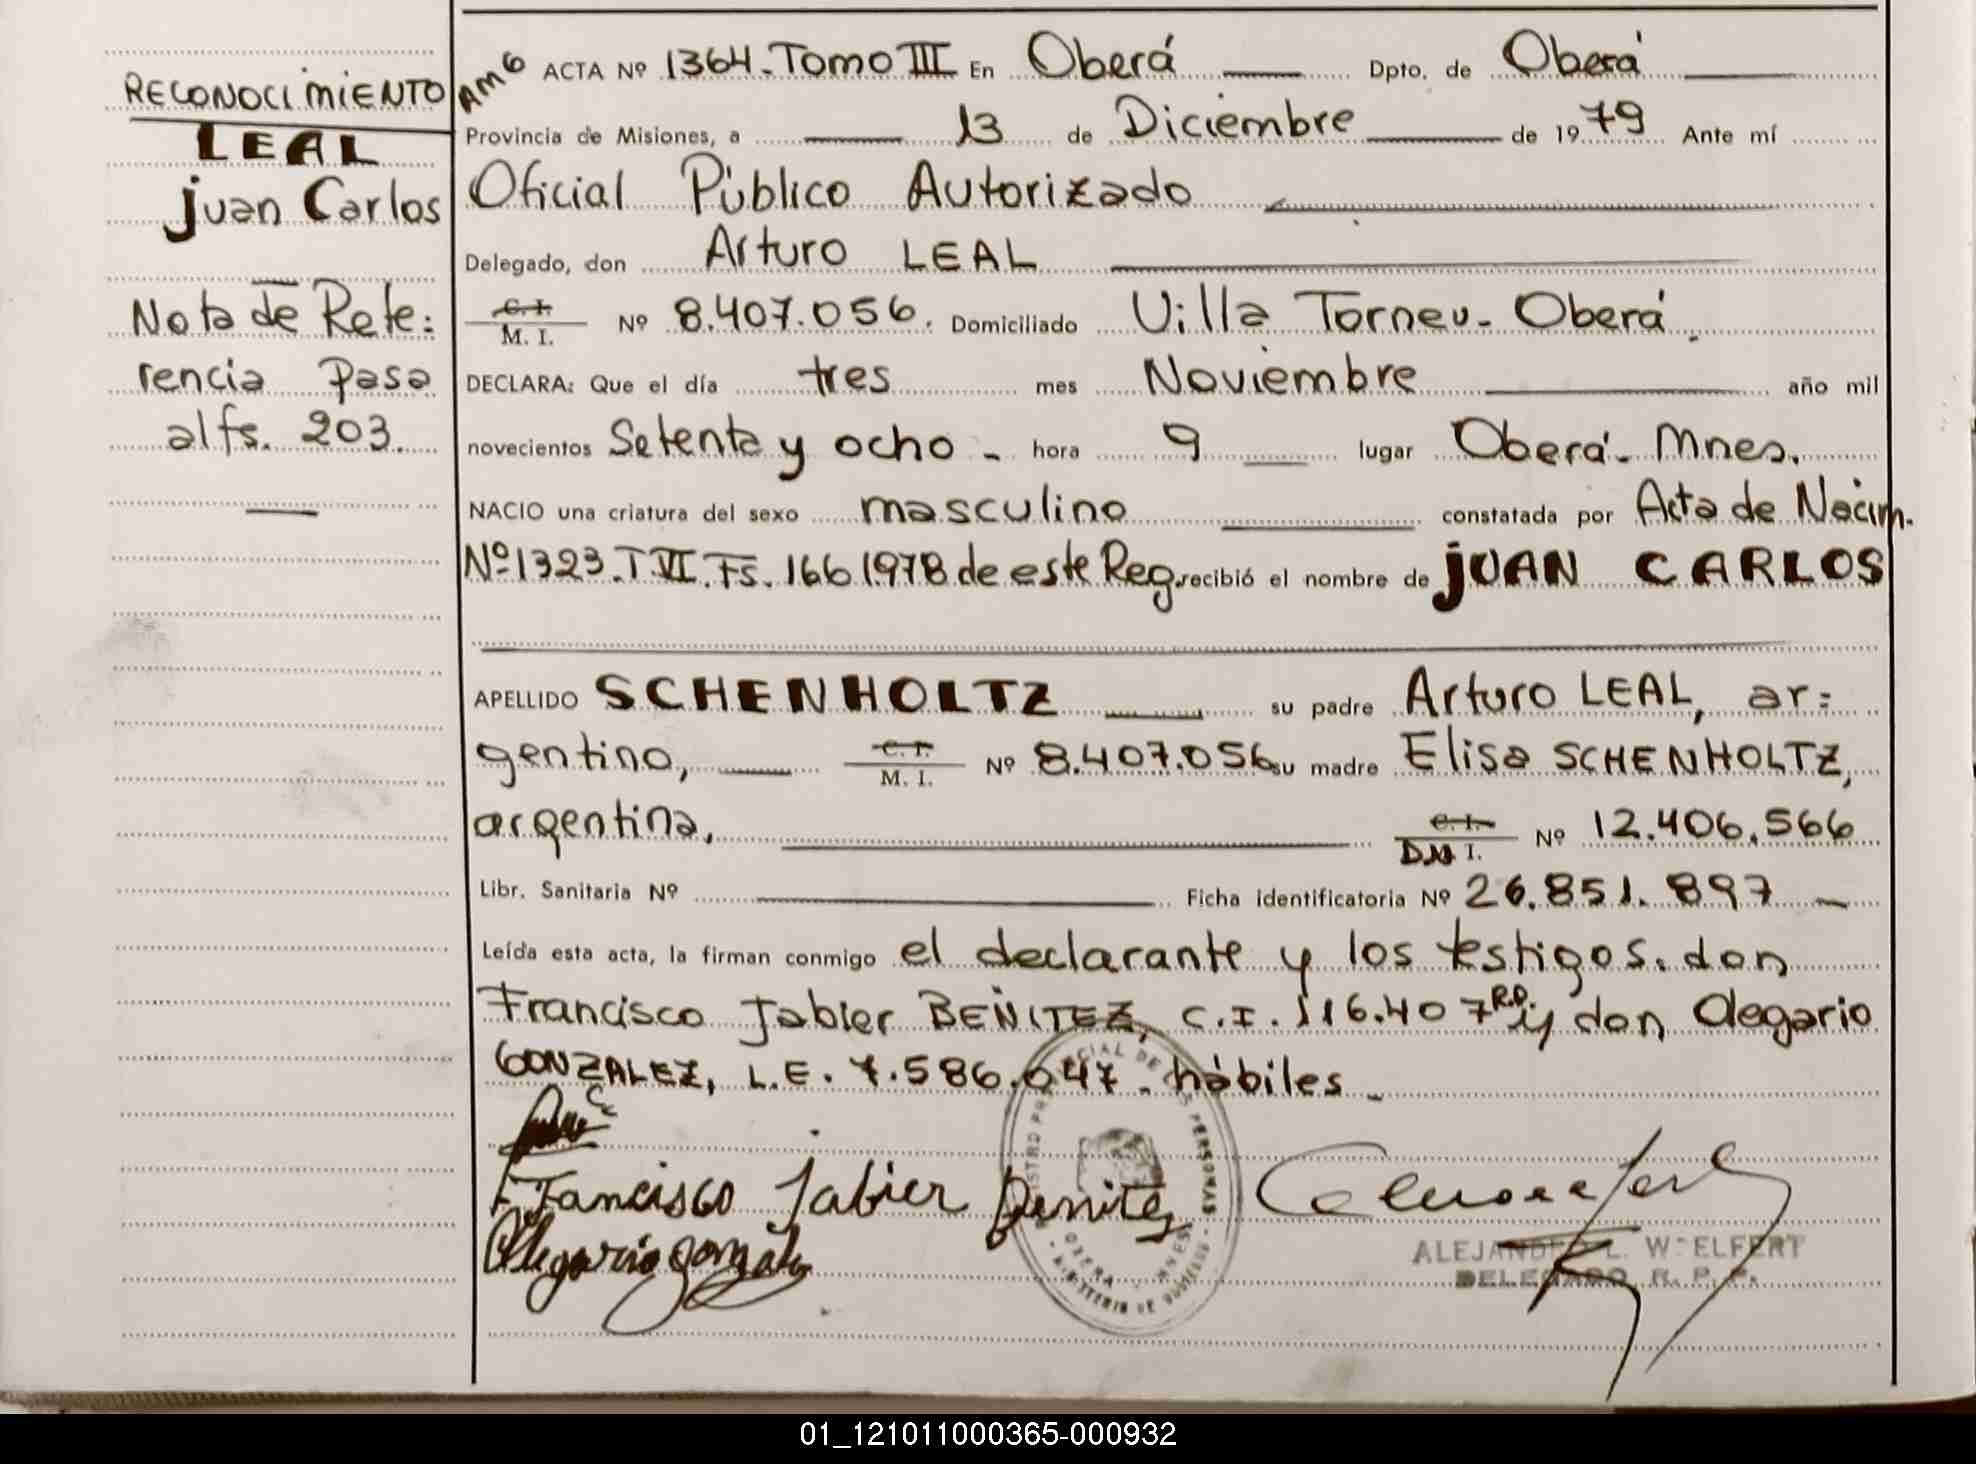 RECONOCIMIENTO
LEAL
Juan Carlos
Nota de Refe=
rencia Pasa
al fs. 203.
ACTA Nº 1364-Tomo III En Oberá Dpto. de Oberá
Provincia de Misiones, a 13 de Diciembre de 1979 Ante mí
Oficial Público Autorizado
Delegado, don Arturo LEAL
C.I.
M. I. Nº 8.407.056. Domiciliado Villa Torneu- Oberá.
DECLARA: Que el día tres mes Noviembre año mil
novecientos Setenta y ocho - hora 9 lugar Oberá- Mnes.
NACIO una criatura del sexo masculino constatada por Acta de Nacim.
Nº1323.T.VI.Fs.166 1978 de este Reg. recibió el nombre de JUAN CARLOS
APELLIDO SCHENHOLTZ su padre Arturo LEAL, ar=
gentino, C.I. M. I. Nº 8.407.056 su madre Elisa SCHENHOLTZ,
argentina, C.I. D.N I. Nº 12.406.566
Libr. Sanitaria Nº Ficha identificatoria Nº 26.851.897 -
Leída esta acta, la firman conmigo el declarante y los testigos. don
Francisco Jabier BENITEZ, C.I. 116.407 R.P. y don Olegario
GONZALEZ, L.E. 7.586.047 - hábiles -
Francisco Jabier Benitez
Olegario gonzalez
ALEJANDRO L. WOELFERT
DELEGADO R. P. P.
01_121011000365-000932